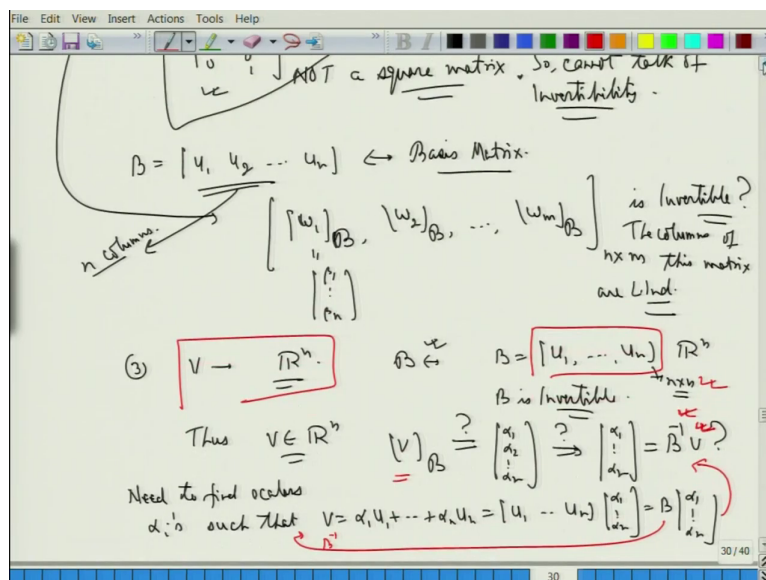 File Edit View Insert Actions Tools Help
NOT a square matrix. So, cannot talk of
Invertibility.
B = [u₁ u₂ ... uₙ] ↔ Basis Matrix.
n columns.
[[w₁]_B, [w₂]_B, ..., [w_m]_B] n×m
is Invertible?
The columns of
this matrix
are L.Ind.
"
[β₁ ⋮ βₙ]
③ V → ℝⁿ. B ↔ B = [u₁, ..., uₙ] ℝⁿ
n×n
B is Invertible.
Thus V ∈ ℝⁿ [V]_B ?= [α₁ α₂ ⋮ αₙ] ?⇒ [α₁ ⋮ αₙ] = B⁻¹ v ?
Need to find scalars
αᵢ's such that V = α₁u₁ + ... + αₙuₙ = [u₁ ... uₙ] [α₁ ⋮ αₙ] = B [α₁ ⋮ αₙ]
B⁻¹
30 / 40
30